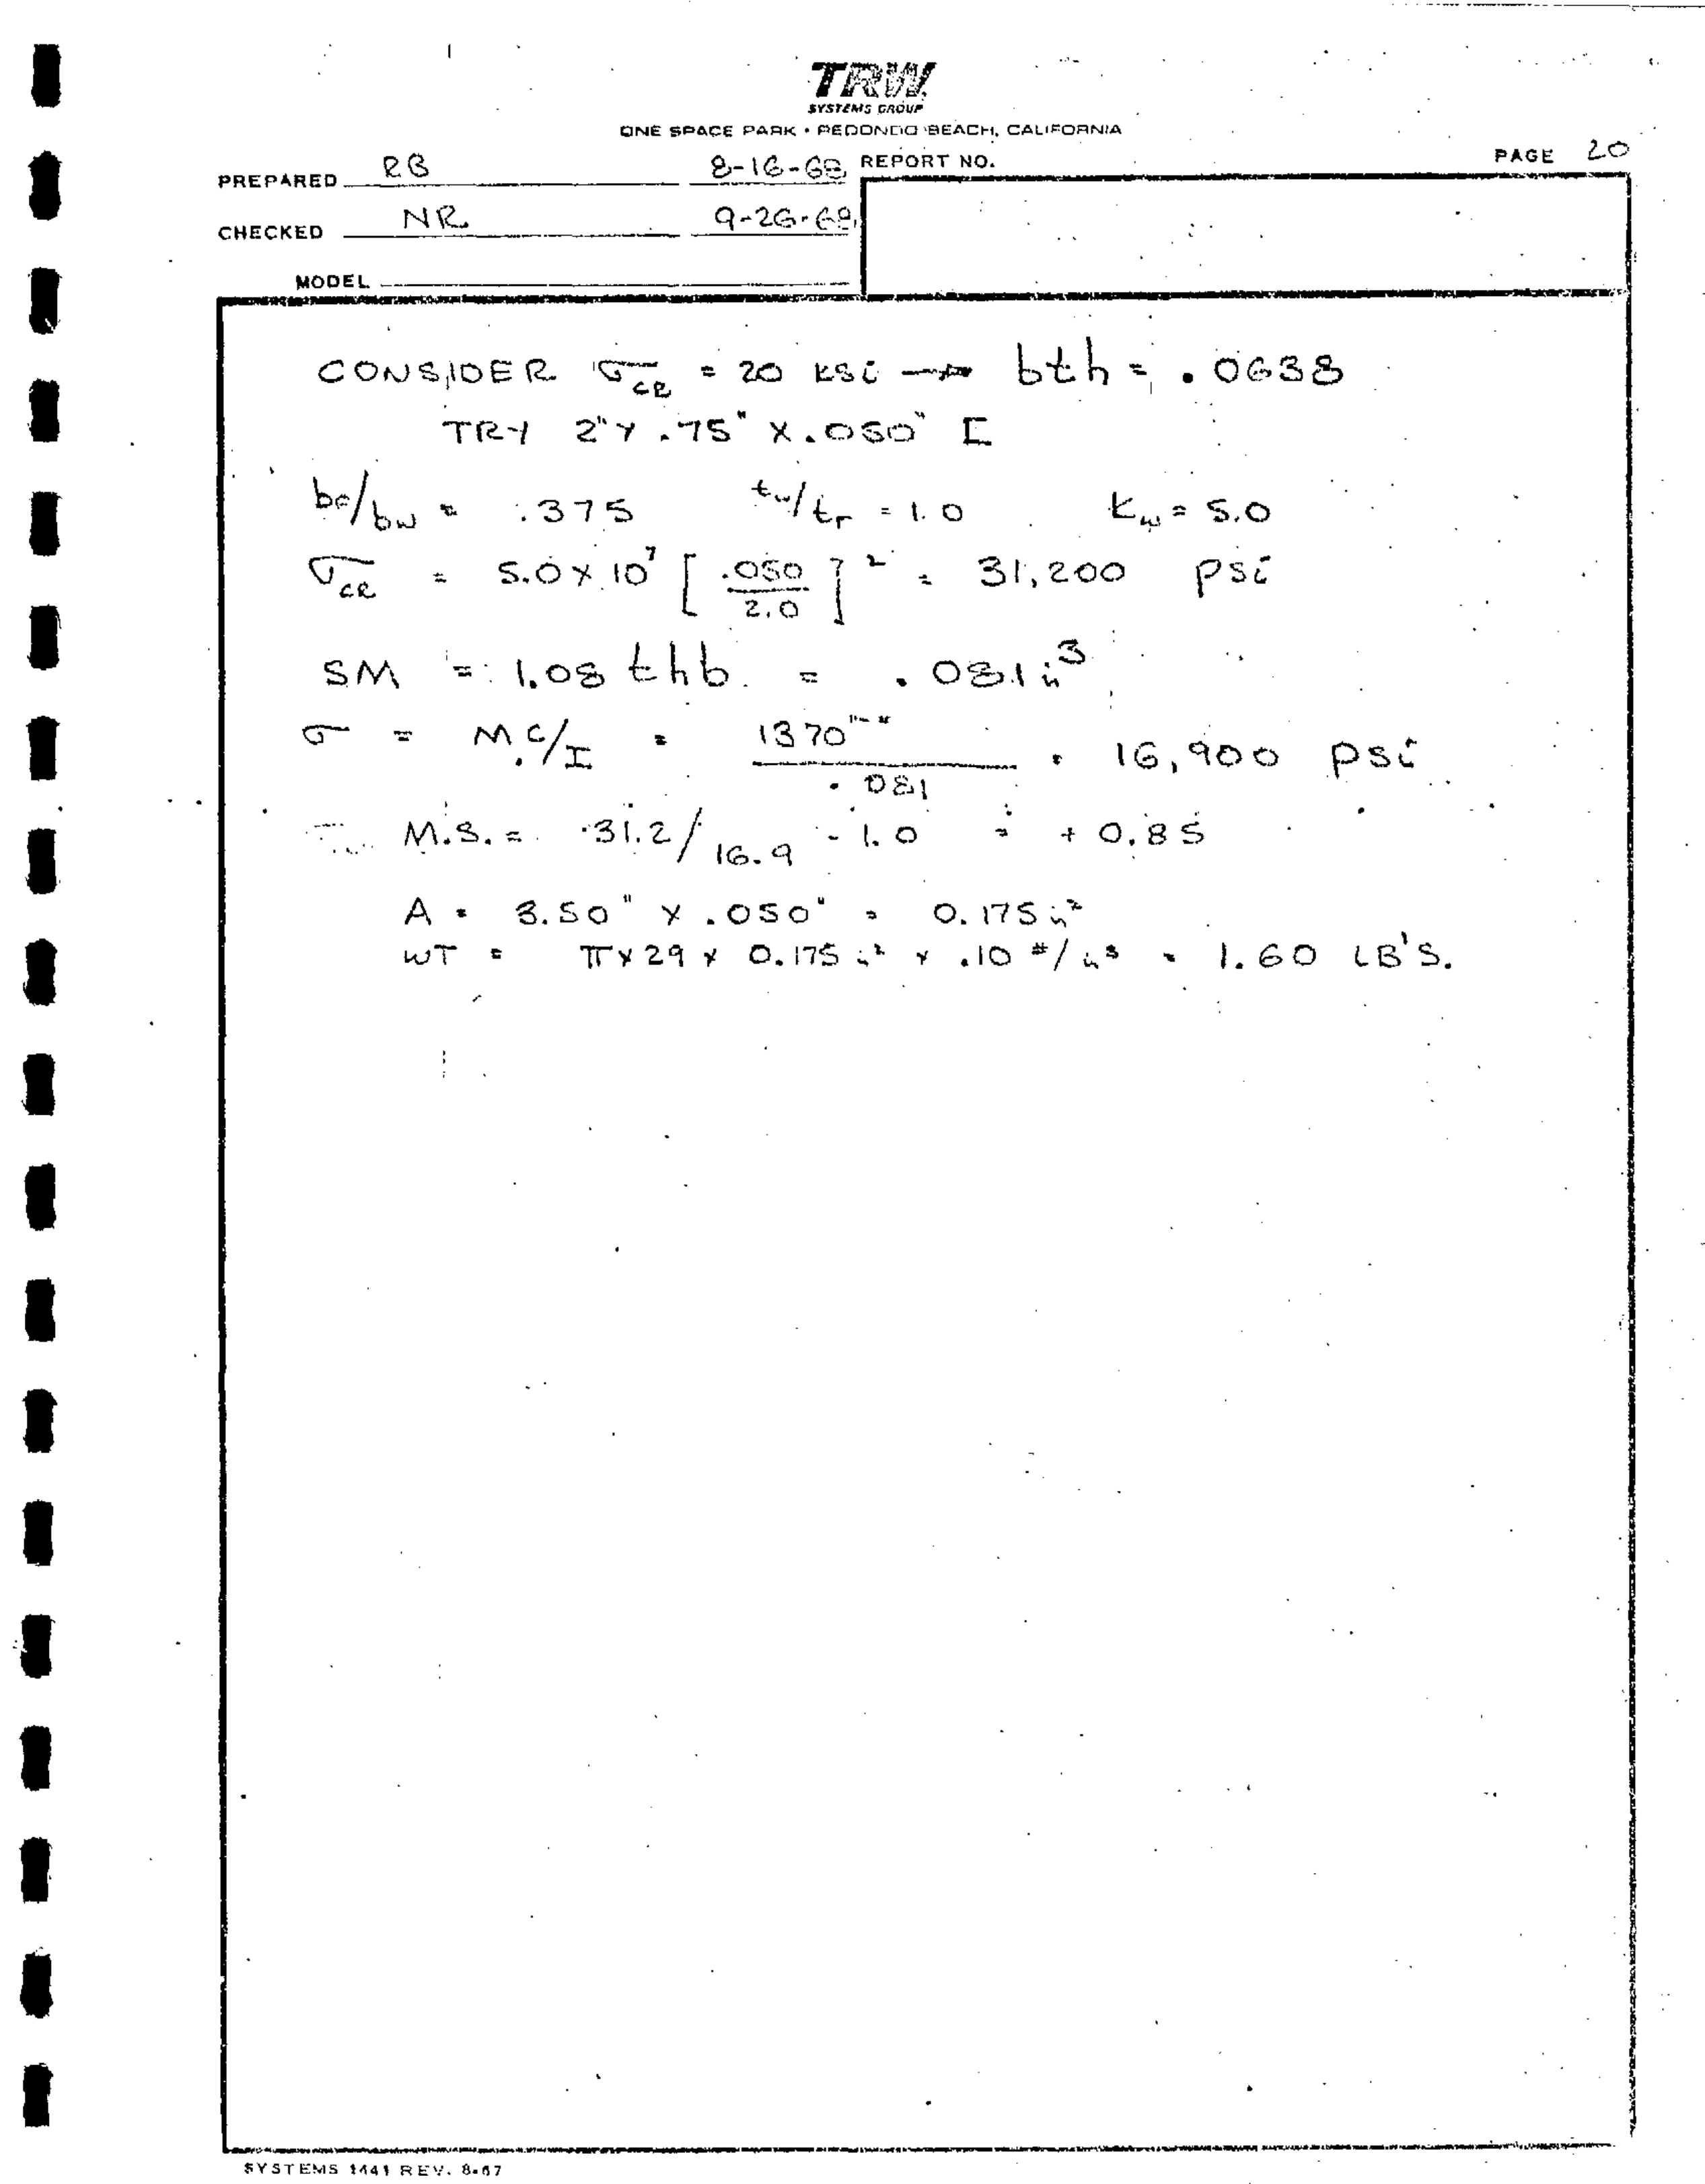 TRW
SYSTEMS GROUP
ONE SPACE PARK • REDONDO BEACH, CALIFORNIA
PREPARED RB 8-16-68 REPORT NO. PAGE 20
CHECKED NR 9-26-68
MODEL
CONSIDER σCR = 20 KSi → bth = .0638
TRY 2" x .75" x .050" [
bf/bw = .375 tw/tf = 1.0 Kw = 5.0
σCR = 5.0 x 10⁷ [.050/2.0]² = 31,200 psi
SM = 1.08 thb = .081 in³
σ = Mc/I = 1370"-#/.081 = 16,900 psi
M.S. = 31.2/16.9 - 1.0 = + 0.85
A = 3.50" x .050" = 0.175 in²
WT = π x 29 x 0.175 in² x .10 #/in³ = 1.60 LB'S.
SYSTEMS 1441 REV. 8-67